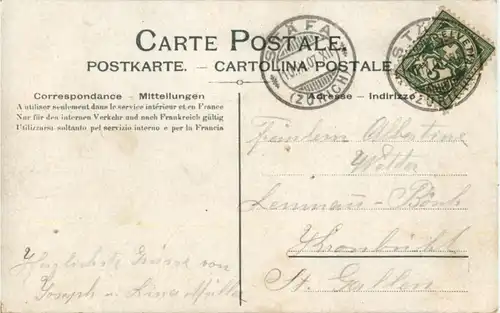 CARTE POSTALE.
POSTKARTE. - CARTOLINA POSTALE
STÄFA
(ZÜRICH)
HELVETIA
5
Correspondance - Mitteilungen
A utiliser seulement dans le service intérieur et en France
Nur für den internen Verkehr und nach Frankreich gültig
Utilizzarsi soltanto pel servizio interno e per la Francia
Adresse - Indirizzo
Fräulein Albertine
Kronbühl
St. Gallen
Herzlichste Grüsse von
Joseph u. Müller